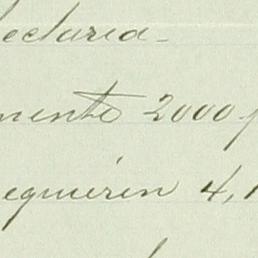 eclaria
mento 2000
equieren 4,